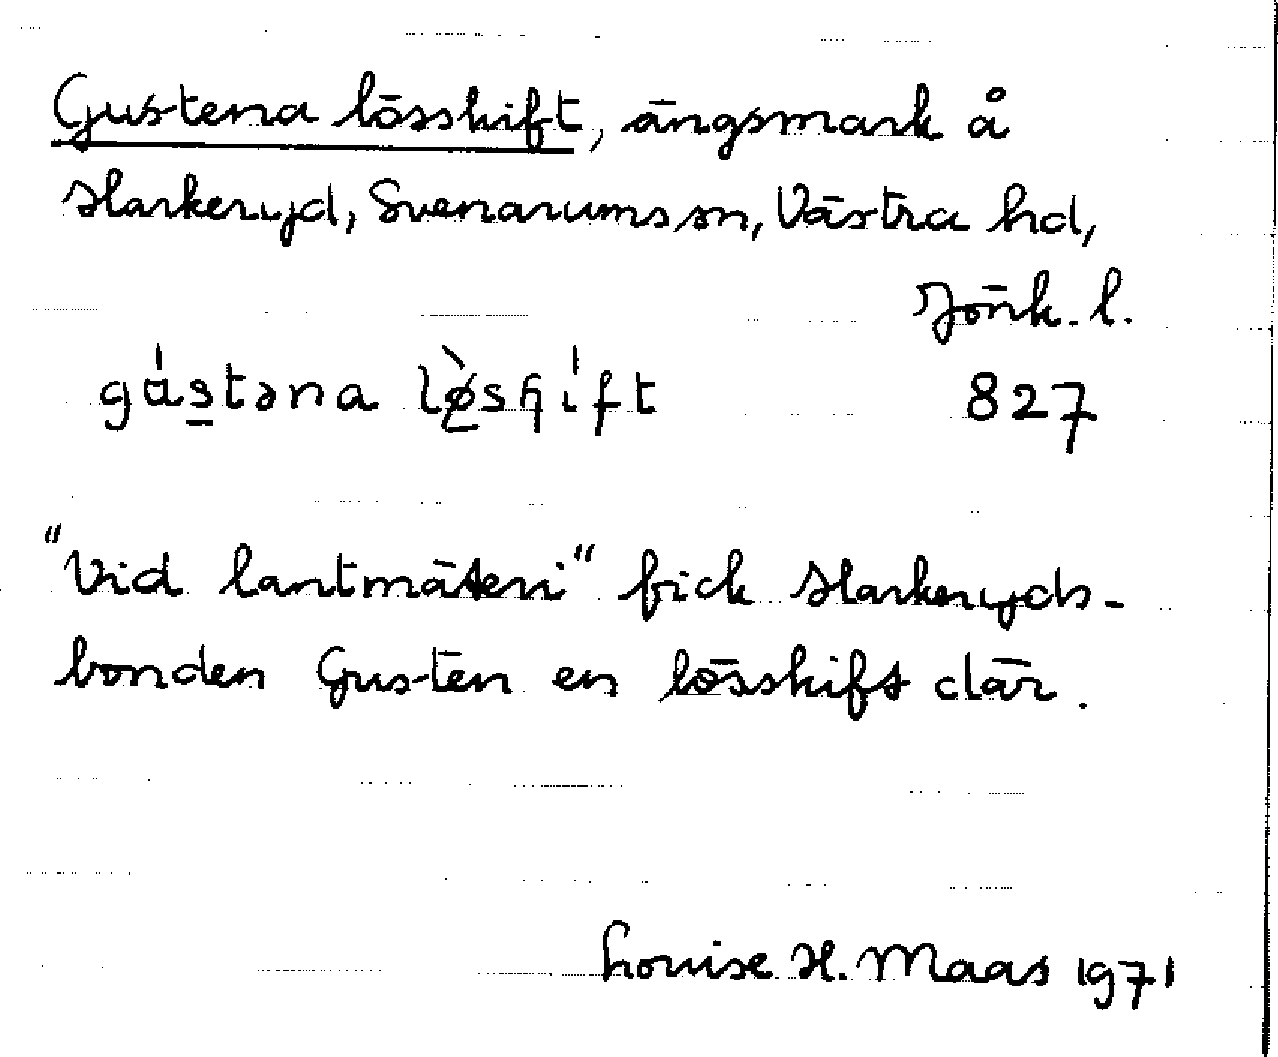 Gustena lösskift, ängsmark å
Harkeryd, Svenarums sn, Västra hd,
Jönk. l.
827
"Vid lantmäteri" fick Harkeryds-
bonden Gusten en lösskift där.
Louise H. Maas 1971